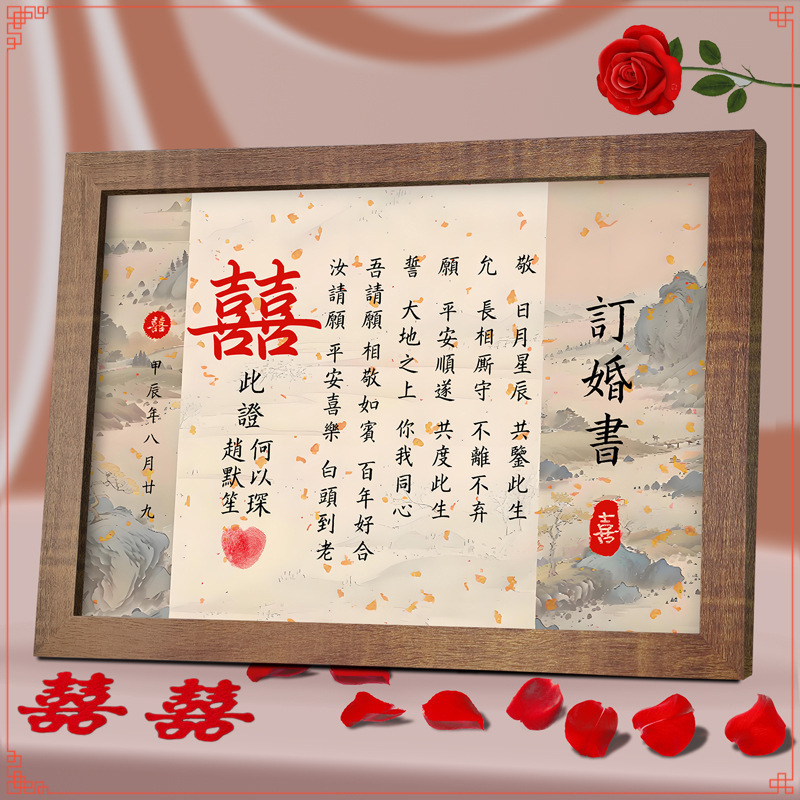 訂婚書
囍
敬 日月星辰 共鑒此生
允 長相厮守 不離不弃
願 平安順遂 共度此生
誓 大地之上 你我同心
吾請願 相敬如賓 百年好合
汝請願 平安喜樂 白頭到老
囍
此證
何以琛
趙默笙
囍
甲辰年八月廿九
囍
囍